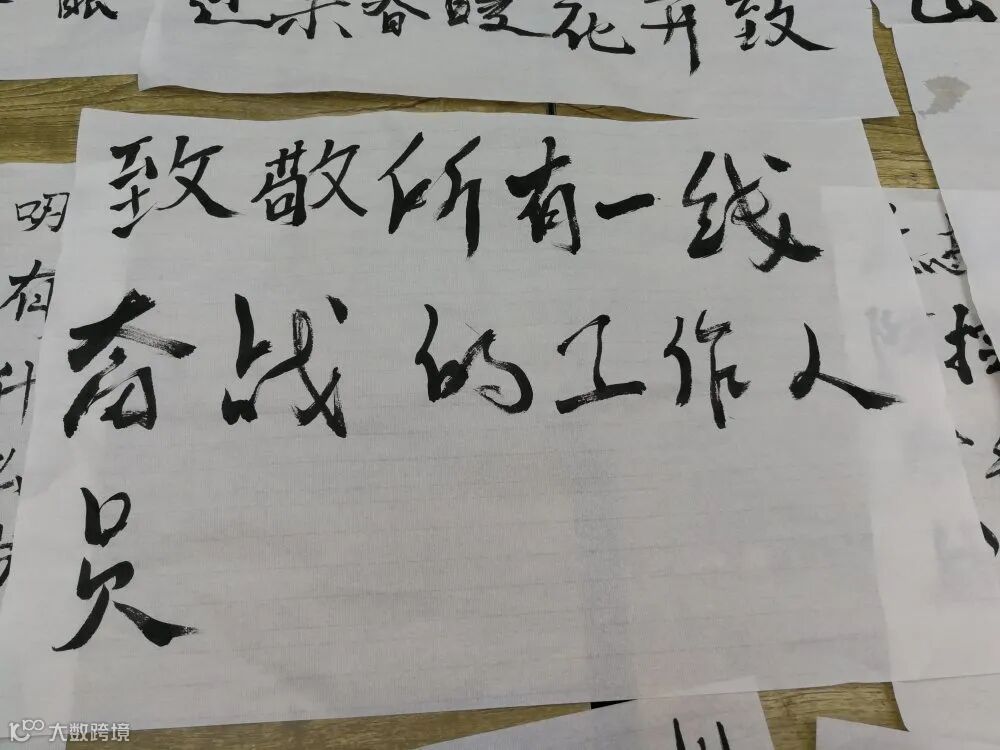 春暖花开致
致敬所有一线
奋战的工作人
员
明
有
升
大数跨境